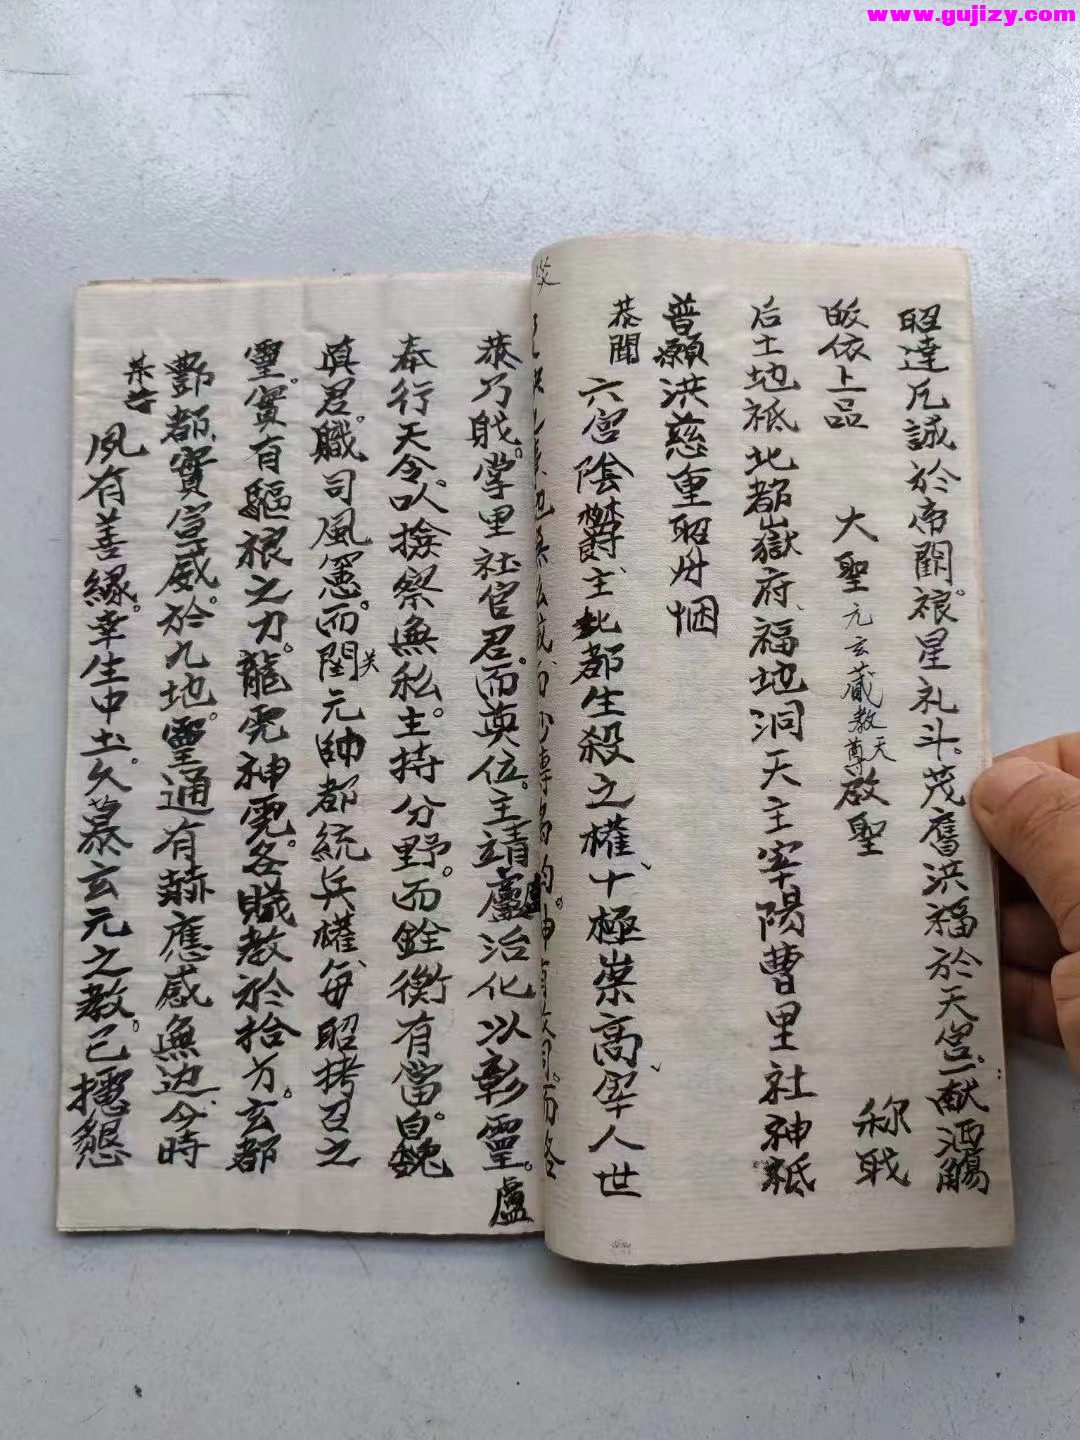 www.gujizy.com
昭達凡誠於帝闕禳星礼斗。茂奮洪福於天邑。一献洒觴
称职
皈依上品 大聖元玄蔵教天尊啟聖
后土地祇北都嶽府、福地洞天主宰陽曹里社神祇
普願洪慈重昭丹悃
恭聞 六宫陰欝、主北都生殺之權、十極崇高、宰人世
恭乃戝。掌里社官君。而奠位。主靖盧治化以彰靈。
盧
奉行天令。以撿察無私。主持分野。而銓衡有當。白魏
真君。職司風憲。而関元帥都統兵權、每昭拷召之
靈。實有驅禳之刀。龍虎神虎。各賤教於拾方。玄都
酆都、實宣威。於九地。靈通有赫應感無边、今時
某昔 夙有善緣。幸生中土。久慕玄元之教。已攄懇